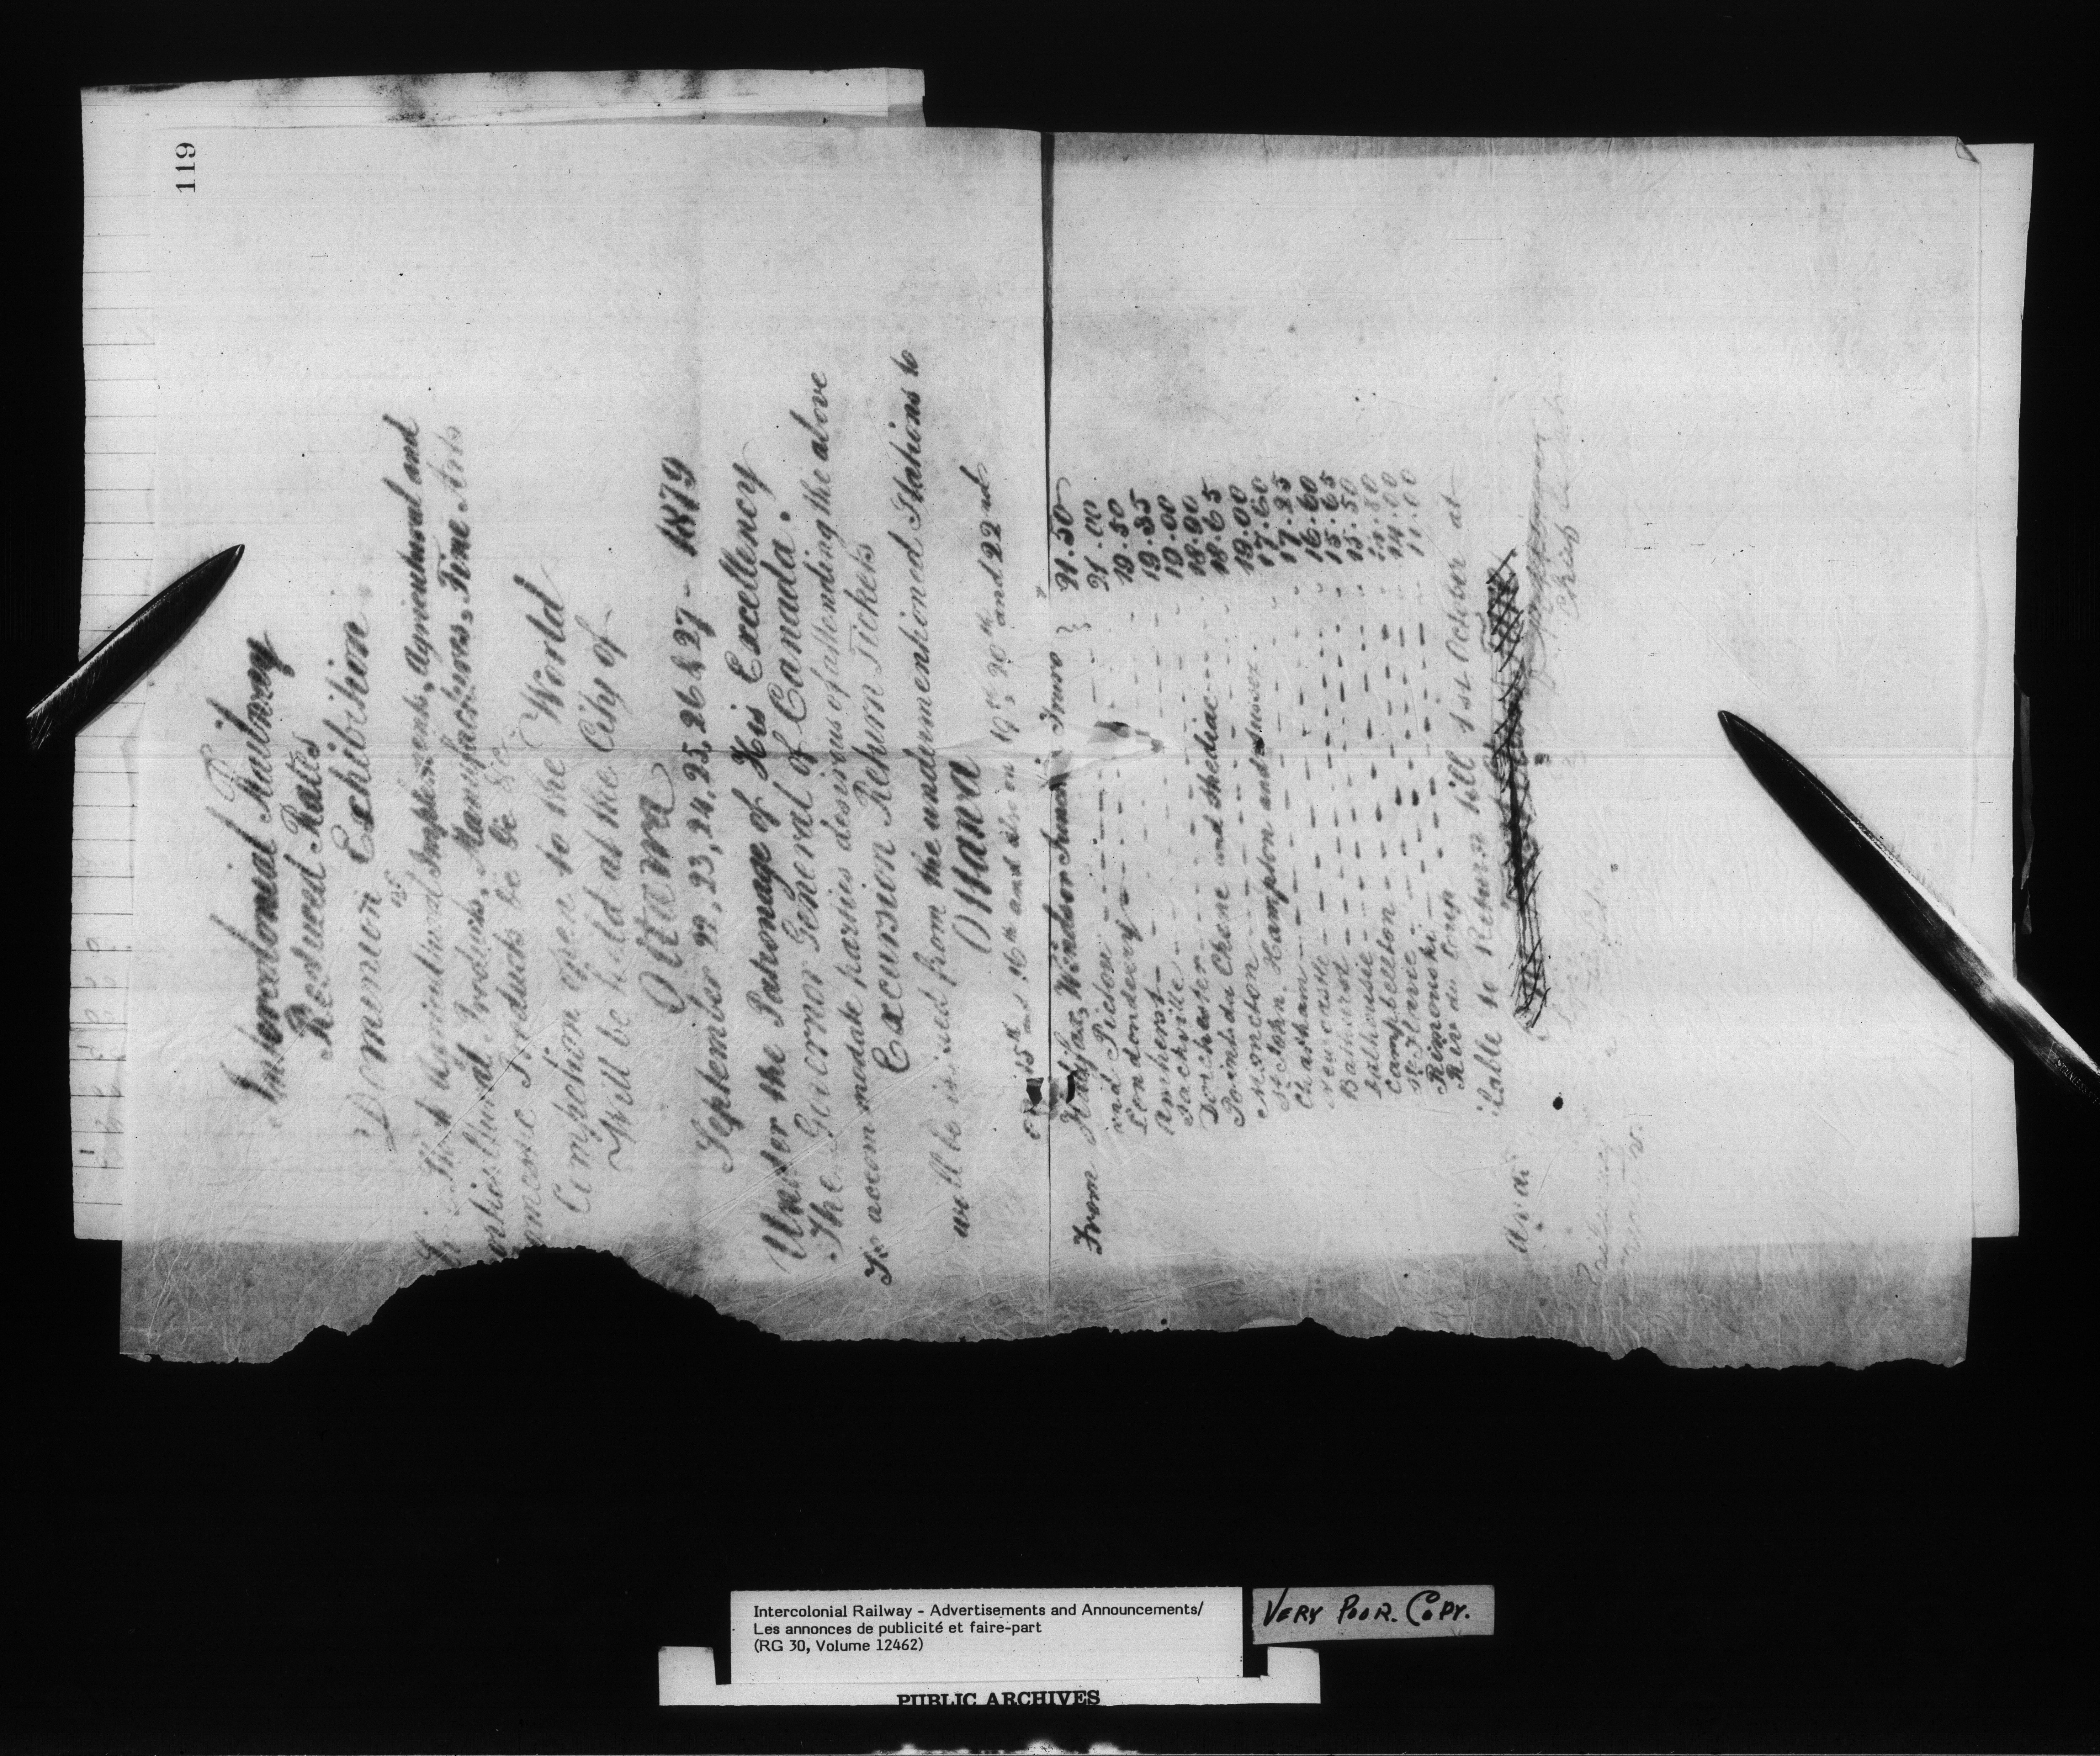 119
Intercolonial Railway
Reduced Rates
Dominion Exhibition
of
Agricultural Implements, Agricultural and
Horticultural Products, Manufactures, Fine Arts
Domestic Products &c &c &c
Competition open to the World
Will be held at the City of
Ottawa
September 22, 23, 24, 25, 26 & 27 - 1879
Under the Patronage of His Excellency
The Governor General of Canada.
To accommodate parties desirous of attending the above
Excursion Return Tickets
will be issued from the undermentioned Stations to
Ottawa
15th and 16th and also on 19th, 20th and 22nd
From Halifax, Windsor Junc Truro } 21.50
and Pictou 21.00
Londonderry 19.50
Amherst 19.35
Sackville 19.00
Dorchester 18.90
Point du Chene and Shediac 18.65
Moncton 19.00
St John. Hampton and Sussex 17.60
Chatham 17.25
Newcastle 16.60
Bathurst 15.65
Dalhousie 15.50
Campbellton
St Flavie 14.00
Rimouski 11.00
Riv du Loup
Available to Return till 1st October at
Chief
Railway
Intercolonial Railway - Advertisements and Announcements/
Les annonces de publicité et faire-part
(RG 30, Volume 12462)
VERY POOR. COPY.
PUBLIC ARCHIVES